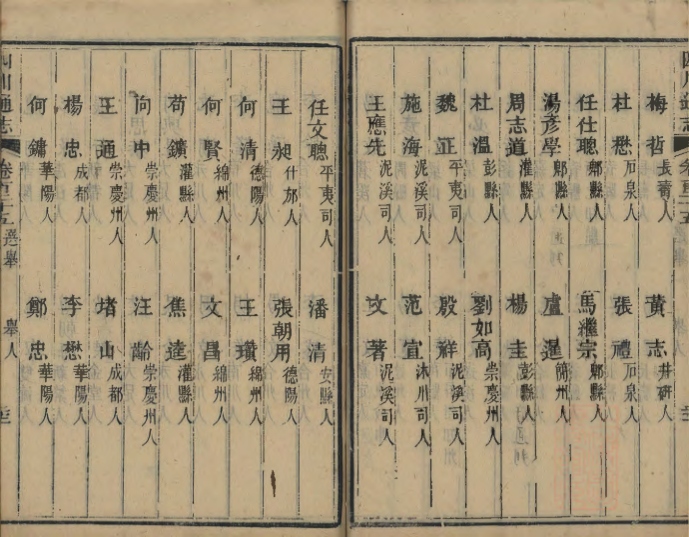 四川通志
梅哲長壽人 黃志井研人
杜懋石泉人 張禮石泉人
任仕聰鄰縣人 馬繼宗鄰縣人
湯彥學鄰縣人 盧暹簡州人
周志道灌縣人 楊圭彭縣人
杜溫彭縣人 劉如高崇慶州人
魏正平夷司人 殷祥泥溪司人
施海泥溪司人 范宣沐川司人
王應先泥溪司人 文著泥溪司人
任文聰平夷司人 潘清安縣人
王昶什邡人 張朝用德陽人
何清德陽人 王瓚綿州人
何賢綿州人 文昌綿州人
苟鑛灌縣人 焦達灌縣人
向中崇慶州人 汪齡崇慶州人
王通崇慶州人 堵山成都人
楊忠成都人 李懋華陽人
何鏞華陽人 鄭忠華陽人
四川通志 卷百二十五 選舉 舉人